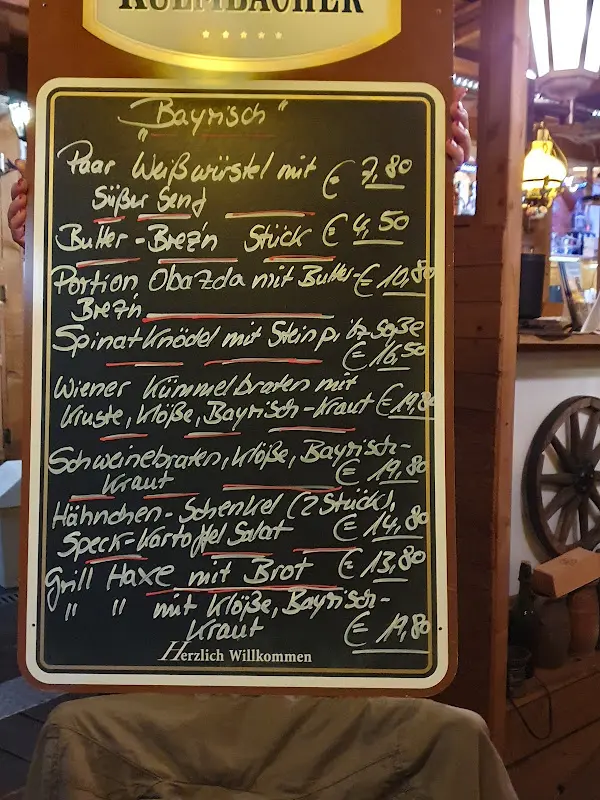 KULMBACHER
"Bayrisch"
Paar Weißwürstel mit € 7,80
Süßer Senf
Butter-Brez'n Stück € 4,50
Portion Obazda mit Butter- € 10,80
Brez'n
Spinatknödel mit Steinpilzsoße
€ 16,50
Wiener Kümmelbraten mit
Kruste, Klöße, Bayrisch-Kraut € 19,80
Schweinebraten, Klöße, Bayrisch-
Kraut € 19,80
Hähnchen-Schenkel (2 Stück),
Speck-Kartoffel Salat € 14,80
Grill Haxe mit Brot € 13,80
" " mit Klöße, Bayrisch-
Kraut € 19,80
Herzlich Willkommen